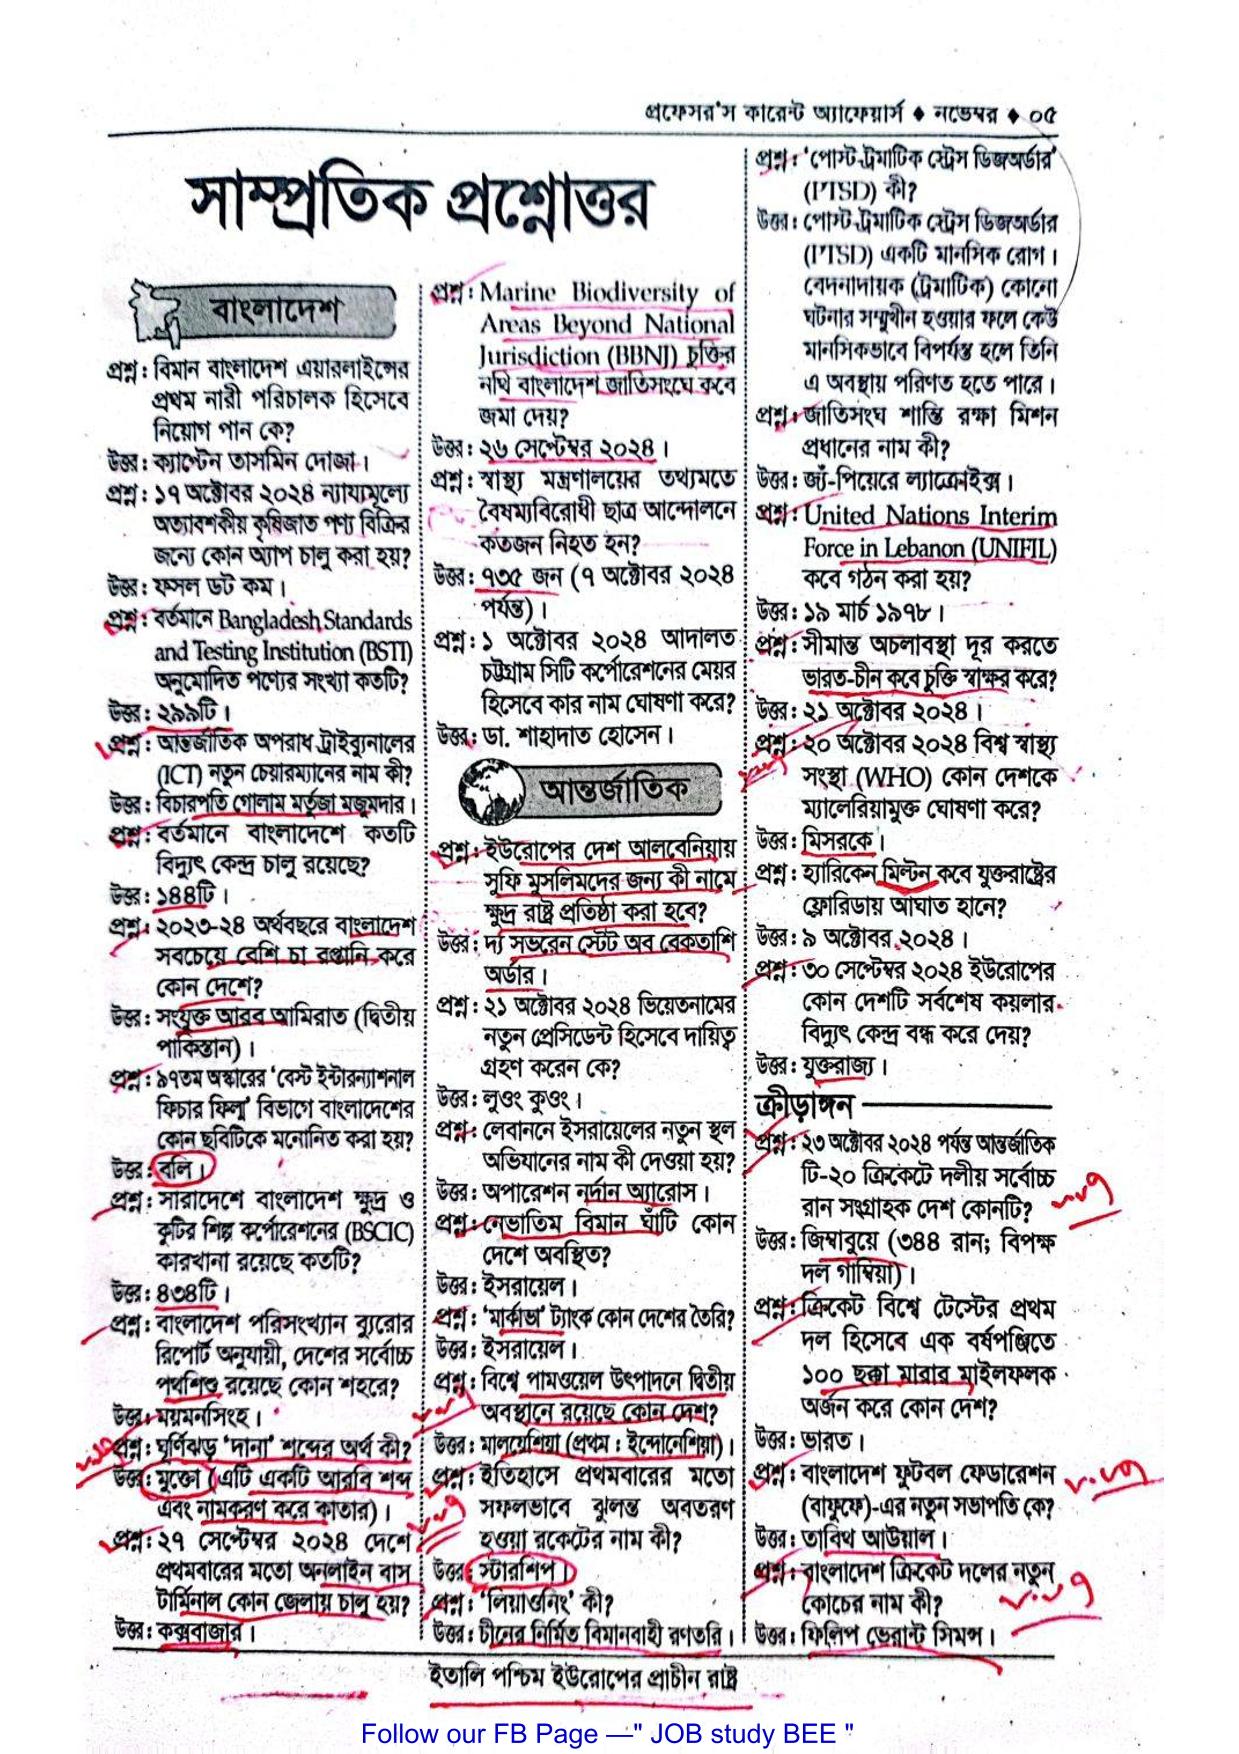 প্রফেসর'স কারেন্ট অ্যাফেয়ার্স ♦ নভেম্বর ♦ ০৫
সাম্প্রতিক প্রশ্নোত্তর
বাংলাদেশ
প্রশ্ন : বিমান বাংলাদেশ এয়ারলাইন্সের
প্রথম নারী পরিচালক হিসেবে
নিয়োগ পান কে?
উত্তর : ক্যাপ্টেন তাসমিন দোজা।
প্রশ্ন : ১৭ অক্টোবর ২০২৪ ন্যায্যমূল্যে
অত্যাবশকীয় কৃষিজাত পণ্য বিক্রির
জন্যে কোন অ্যাপ চালু করা হয়?
উত্তর : ফসল ডট কম।
প্রশ্ন : বর্তমানে Bangladesh Standards
and Testing Institution (BSTI)
অনুমোদিত পণ্যের সংখ্যা কতটি?
উত্তর : ২৯৯টি।
প্রশ্ন : আন্তর্জাতিক অপরাধ ট্রাইব্যুনালের
(ICT) নতুন চেয়ারম্যানের নাম কী?
উত্তর : বিচারপতি গোলাম মর্তুজা মজুমদার।
প্রশ্ন : বর্তমানে বাংলাদেশে কতটি
বিদ্যুৎ কেন্দ্র চালু রয়েছে?
উত্তর : ১৪৪টি।
প্রশ্ন : ২০২৩-২৪ অর্থবছরে বাংলাদেশ
সবচেয়ে বেশি চা রপ্তানি করে
কোন দেশে?
উত্তর : সংযুক্ত আরব আমিরাত (দ্বিতীয়
পাকিস্তান)।
প্রশ্ন : ৯৭তম অস্কারের 'বেস্ট ইন্টারন্যাশনাল
ফিচার ফিল্ম' বিভাগে বাংলাদেশের
কোন ছবিটিকে মনোনিত করা হয়?
উত্তর : বলি।
প্রশ্ন : সারাদেশে বাংলাদেশ ক্ষুদ্র ও
কুটির শিল্প কর্পোরেশনের (BSCIC)
কারখানা রয়েছে কতটি?
উত্তর : ৪৩৪টি।
প্রশ্ন : বাংলাদেশ পরিসংখ্যান ব্যুরোর
রিপোর্ট অনুযায়ী, দেশের সর্বোচ্চ
পথশিশু রয়েছে কোন শহরে?
উত্তর : ময়মনসিংহ।
প্রশ্ন : ঘূর্ণিঝড় 'দানা' শব্দের অর্থ কী?
উত্তর : মুক্তো (এটি একটি আরবি শব্দ
এবং নামকরণ করে কাতার)।
প্রশ্ন : ২৭ সেপ্টেম্বর ২০২৪ দেশে
প্রথমবারের মতো অনলাইন বাস
টার্মিনাল কোন জেলায় চালু হয়?
উত্তর : কক্সবাজার।
প্রশ্ন : Marine Biodiversity of
Areas Beyond National
Jurisdiction (BBNJ) চুক্তির
নথি বাংলাদেশ জাতিসংঘে কবে
জমা দেয়?
উত্তর : ২৬ সেপ্টেম্বর ২০২৪।
প্রশ্ন : স্বাস্থ্য মন্ত্রণালয়ের তথ্যমতে
বৈষম্যবিরোধী ছাত্র আন্দোলনে
কতজন নিহত হন?
উত্তর : ৭৩৫ জন (৭ অক্টোবর ২০২৪
পর্যন্ত)।
প্রশ্ন : ১ অক্টোবর ২০২৪ আদালত
চট্টগ্রাম সিটি কর্পোরেশনের মেয়র
হিসেবে কার নাম ঘোষণা করে?
উত্তর : ডা. শাহাদাত হোসেন।
আন্তর্জাতিক
প্রশ্ন : ইউরোপের দেশ আলবেনিয়ায়
সুফি মুসলিমদের জন্য কী নামে
ক্ষুদ্র রাষ্ট্র প্রতিষ্ঠা করা হবে?
উত্তর : দ্য সভরেন স্টেট অব বেকতাশি
অর্ডার।
প্রশ্ন : ২১ অক্টোবর ২০২৪ ভিয়েতনামের
নতুন প্রেসিডেন্ট হিসেবে দায়িত্ব
গ্রহণ করেন কে?
উত্তর : লুওং কুওং।
প্রশ্ন : লেবাননে ইসরায়েলের নতুন স্থল
অভিযানের নাম কী দেওয়া হয়?
উত্তর : অপারেশন নর্দান অ্যারোস।
প্রশ্ন : নেভাতিম বিমান ঘাঁটি কোন
দেশে অবস্থিত?
উত্তর : ইসরায়েল।
প্রশ্ন : 'মার্কাভা' ট্যাংক কোন দেশের তৈরি?
উত্তর : ইসরায়েল।
প্রশ্ন : বিশ্বে পামওয়েল উৎপাদনে দ্বিতীয়
অবস্থানে রয়েছে কোন দেশ?
উত্তর : মালয়েশিয়া (প্রথম : ইন্দোনেশিয়া)।
প্রশ্ন : ইতিহাসে প্রথমবারের মতো
সফলভাবে ঝুলন্ত অবতরণ
হওয়া রকেটের নাম কী?
উত্তর : স্টারশিপ।
প্রশ্ন : 'লিয়াওনিং' কী?
উত্তর : চীনের নির্মিত বিমানবাহী রণতরি।
প্রশ্ন : 'পোস্ট-ট্রমাটিক স্ট্রেস ডিজঅর্ডার'
(PTSD) কী?
উত্তর : পোস্ট-ট্রমাটিক স্ট্রেস ডিজঅর্ডার
(PTSD) একটি মানসিক রোগ।
বেদনাদায়ক (ট্রমাটিক) কোনো
ঘটনার সম্মুখীন হওয়ার ফলে কেউ
মানসিকভাবে বিপর্যস্ত হলে তিনি
এ অবস্থায় পরিণত হতে পারে।
প্রশ্ন : জাতিসংঘ শান্তি রক্ষা মিশন
প্রধানের নাম কী?
উত্তর : জ্যঁ-পিয়েরে ল্যাক্রোইক্স।
প্রশ্ন : United Nations Interim
Force in Lebanon (UNIFIL)
কবে গঠন করা হয়?
উত্তর : ১৯ মার্চ ১৯৭৮।
প্রশ্ন : সীমান্ত অচলাবস্থা দূর করতে
ভারত-চীন কবে চুক্তি স্বাক্ষর করে?
উত্তর : ২১ অক্টোবর ২০২৪।
প্রশ্ন : ২০ অক্টোবর ২০২৪ বিশ্ব স্বাস্থ্য
সংস্থা (WHO) কোন দেশকে
ম্যালেরিয়ামুক্ত ঘোষণা করে?
উত্তর : মিসরকে।
প্রশ্ন : হ্যারিকেন মিল্টন কবে যুক্তরাষ্ট্রের
ফ্লোরিডায় আঘাত হানে?
উত্তর : ৯ অক্টোবর ২০২৪।
প্রশ্ন : ৩০ সেপ্টেম্বর ২০২৪ ইউরোপের
কোন দেশটি সর্বশেষ কয়লার
বিদ্যুৎ কেন্দ্র বন্ধ করে দেয়?
উত্তর : যুক্তরাজ্য।
ক্রীড়াঙ্গন
প্রশ্ন : ২৩ অক্টোবর ২০২৪ পর্যন্ত আন্তর্জাতিক
টি-২০ ক্রিকেটে দলীয় সর্বোচ্চ
রান সংগ্রাহক দেশ কোনটি?
উত্তর : জিম্বাবুয়ে (৩৪৪ রান; বিপক্ষ
দল গাম্বিয়া)।
প্রশ্ন : ক্রিকেট বিশ্বে টেস্টের প্রথম
দল হিসেবে এক বর্ষপঞ্জিতে
১০০ ছক্কা মারার মাইলফলক
অর্জন করে কোন দেশ?
উত্তর : ভারত।
প্রশ্ন : বাংলাদেশ ফুটবল ফেডারেশন
(বাফুফে)-এর নতুন সভাপতি কে?
উত্তর : তাবিথ আউয়াল।
প্রশ্ন : বাংলাদেশ ক্রিকেট দলের নতুন
কোচের নাম কী?
উত্তর : ফিলিপ ভেরান্ট সিমন্স।
ইতালি পশ্চিম ইউরোপের প্রাচীন রাষ্ট্র
Follow our FB Page —" JOB study BEE "